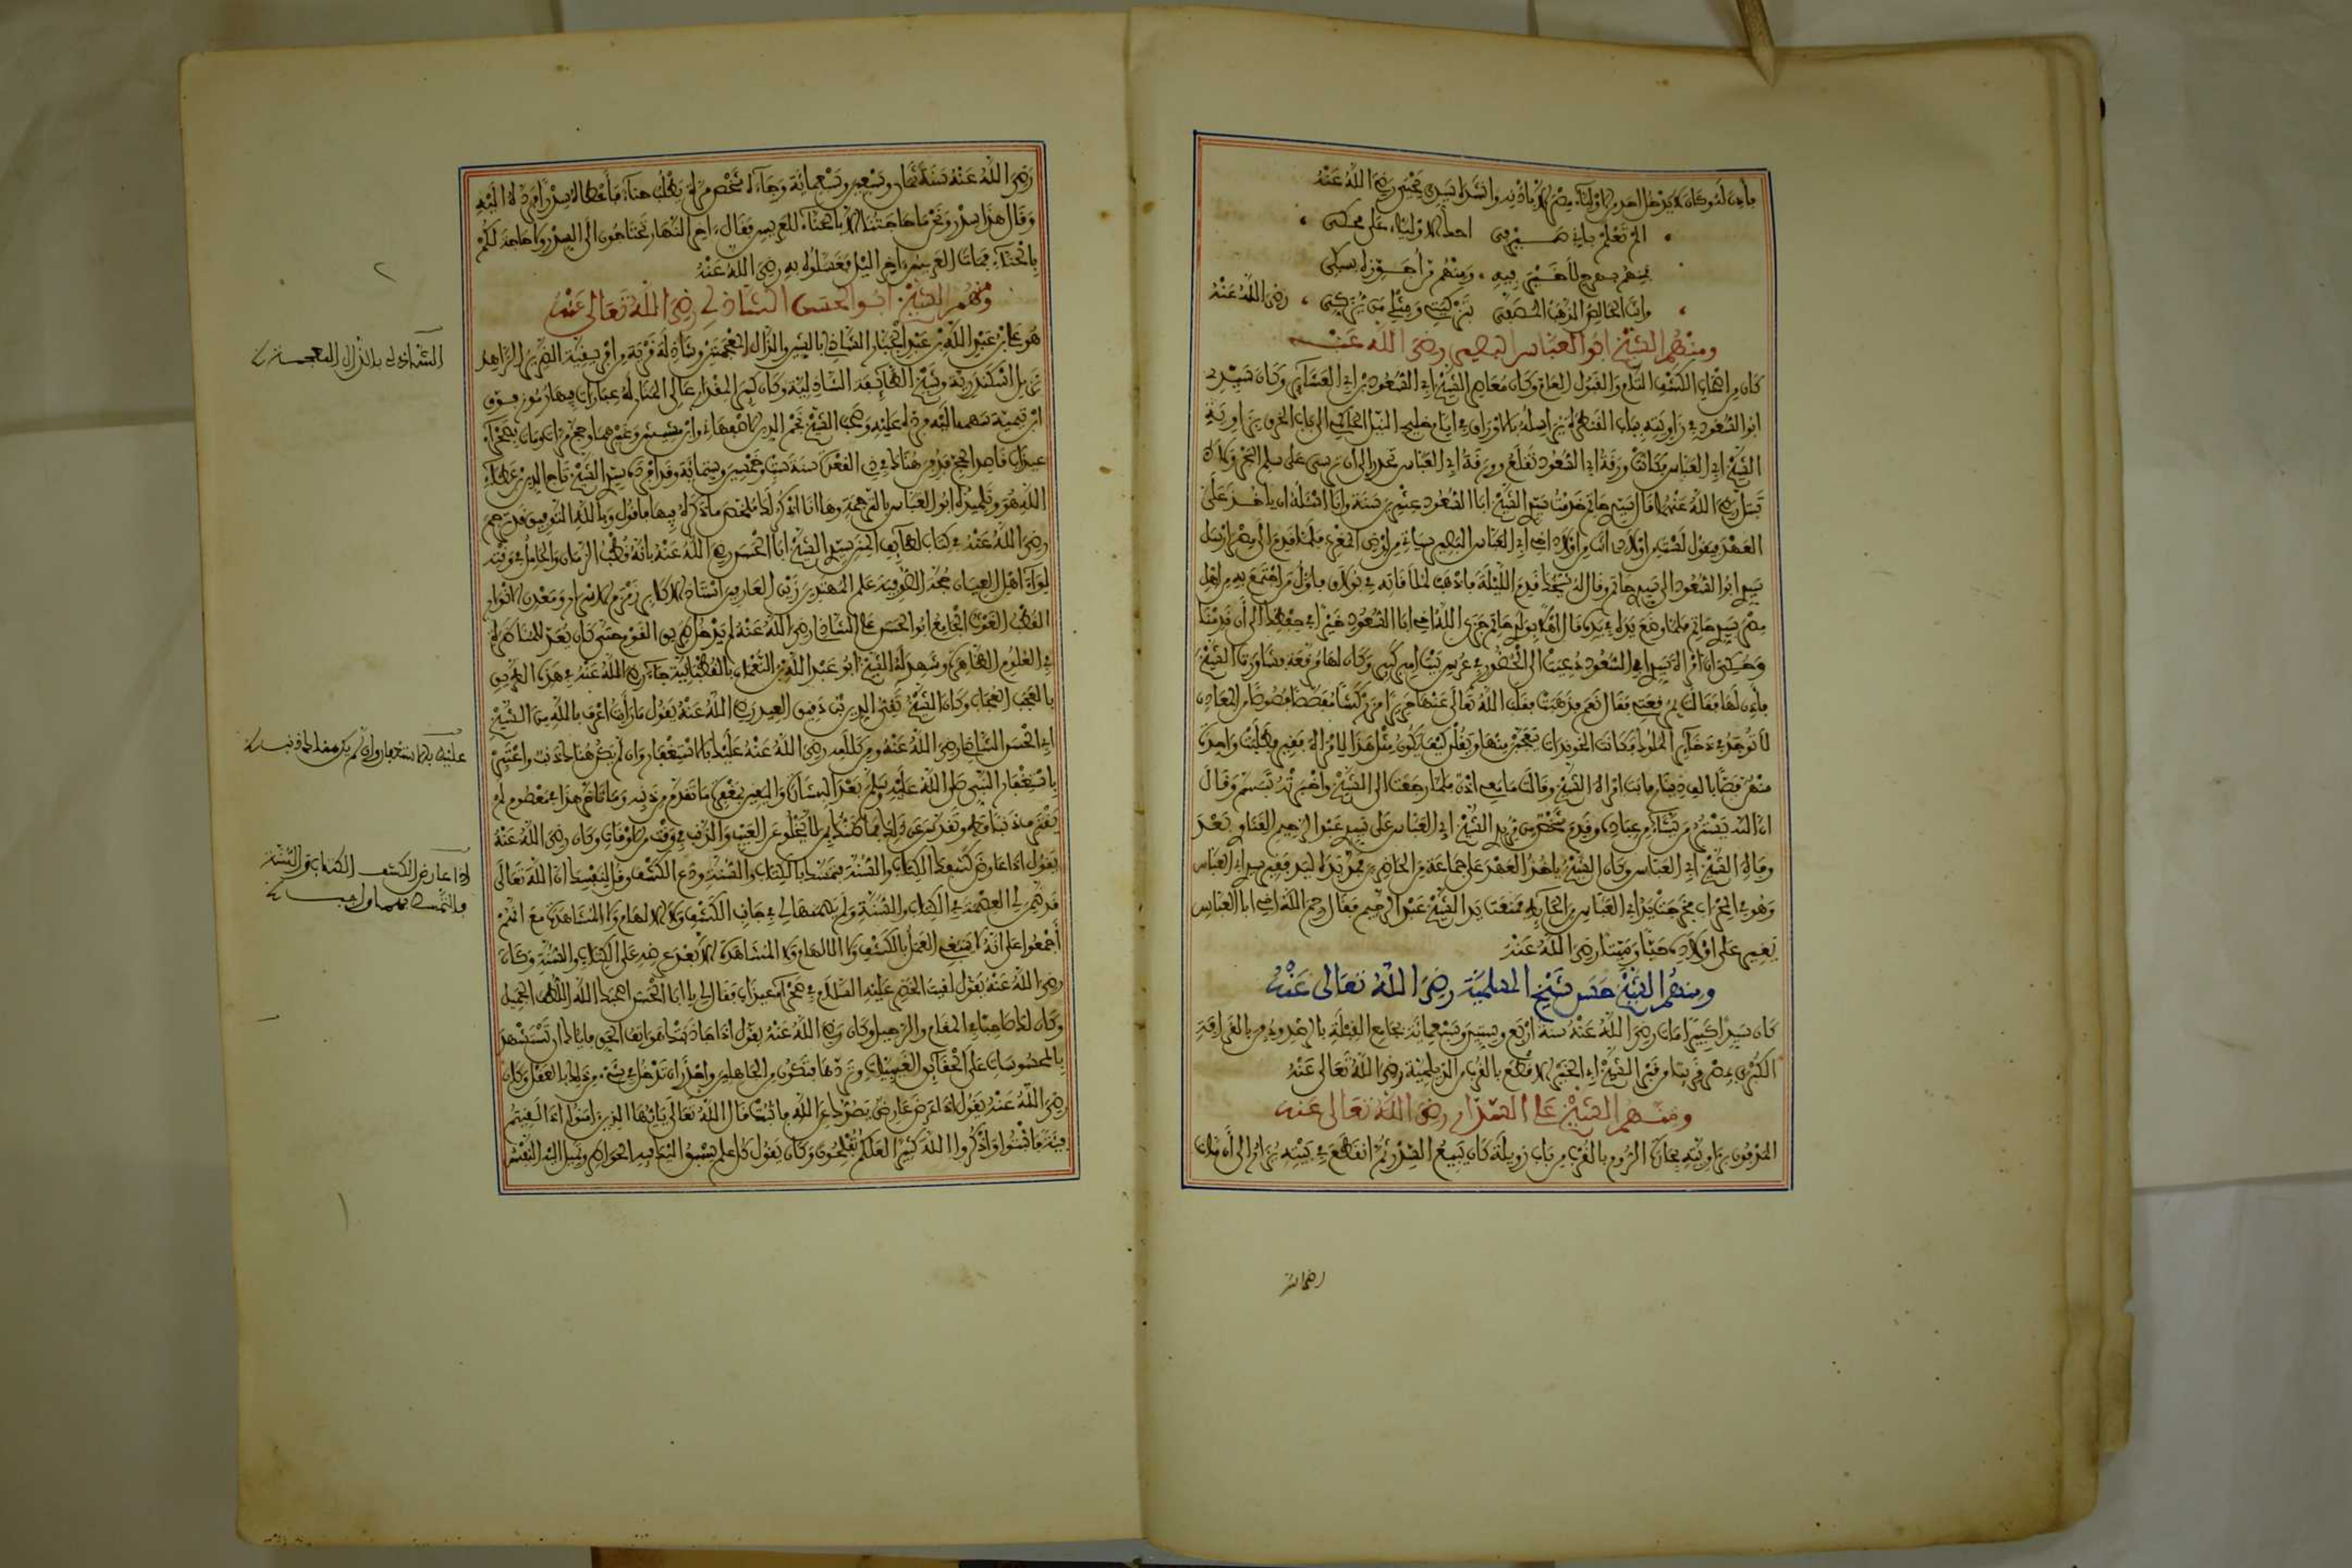 فأذن له وكان لا يدخل احد من الاولياء مصر الا باذنه وانشد سيدي يحيى رضي الله عنه
الم تعلم باني صيرفي احك الاولياء على محكي
فمنهم بهرج لا خير فيه ومنهم من اجوزه بسبكي
وانت الخالص الذهب المصفى بتزكيتي ومثلي من يزكي رضي الله عنه
ومنهم الشيخ ابو العباس البصير رضي الله عنه
كان من اصحاب الكشف التام والقبول العام وكان معاصرا للشيخ ابي السعود بن ابي العشائر وكان سيدي
ابو السعود في زاويته بباب القنطرة يراسله بالاوراق في ايام خليج النيل الحاكمي الى باب الخرق بزاوية
الشيخ ابي العباس فكانت ورقة ابي السعود تقلع وورقة ابي العباس تحدر الى ان ترسي على سلم البحر
رضي الله عنهما قال سيدي حاتم خدمت سيدي الشيخ ابا السعود عشرين سنة وانا اسئله ان ياخذ علي
العهد فيقول لست من اولادي انت من اولاد اخي ابي العباس البصير سياتي من ارض المغرب فلما قدم الى مصر ارسل
سيدي ابو السعود الى سيدي حاتم وقال له شيخك قدم الليلة فاذهب لملاقاته في بولاق فاول من اجتمع به من اهل
مصر سيدي حاتم فلما وضع يده في يده قال اهلا بولدي حاتم جزى الله اخي ابا السعود خيرا في حفظك الى ان قدمنا
وحكي ان امراة سيدي ابي السعود دعيت الى الحضور في عرس بنت امير كبير وكان لها مرقعة فشاورت الشيخ
فأذن لها فقالت بمرقعتي فقال نعم فذهبت فقلب الله تعالى عنها حريرا مزركشا مفصصا فصوصا من المعادن
لا توجد في ذخائر الملوك فكانت الخوندات تتعجب منها ويقلن كيف يكون مثل هذا لامراة فقير فطلبت واحدة
منهن فصا بالف دينار فابت امراة الشيخ وقالت ما معي اذن فلما رجعت الى الشيخ واخبرته تبسم وقال
ان الله يستر من يشاء من عباده وقدم شخص من مريدي الشيخ ابي العباس على سيدي عبد الرحيم القناوي بعد
وفاة الشيخ ابي العباس وكان الشيخ ياخذ العهد على جماعة من الحاضرين
وهو في المحراب فخرجت يد ابي العباس من الحائط فمنعت يد الشيخ عبد الرحيم فقال رحم الله اخي ابا العباس
يغير على اولاده حيا وميتا رضي الله عنه
ومنهم الشيخ حسن شيخ المسلمية رضي الله تعالى عنه
كان سيدا كبيرا مات رضي الله عنه سنة اربع وستين وسبعمائة بجامع الفيلة بالرصد ودفن بالقرافة
الكبرى بمصر قريبا من قبر الشيخ ابي الخير الاقطع بالقرب من الديلمية رضي الله تعالى عنه
ومنهم الشيخ علي السدار رضي الله تعالى عنه
المدفون بزاويته بحارة الروم بالقرب من باب زويلة كان يبيع السدر ثم انقطع في بيته يزار الى ان مات
رضي الله عنه سنة ثمان وسبعين وسبعمائة وجاءه شخص مرة يطلب حناء فأعطاه سدرا فرده اليه
وقال هذا سدر ونحن ما حاجتنا الا بالحناء للعريس فقال اخر النهار تحتاجون الى السدر ولا حاجة لكم
بالحناء فمات العريس اخر الليل فغسلوه به رضي الله عنه
ومنهم الشيخ ابو الحسن الشاذلي رضي الله تعالى عنه
هو علي بن عبد الله بن عبد الجبار الشاذلي بالشين والذال المعجمتين وشاذلة قرية من افريقية الضرير الزاهد
نزيل اسكندرية وشيخ الطائفة الشاذلية وكان كبير المقدار عالي المنار له عبارات فيها رموز فوق
ابن تيمية سهمه اليه فرده عليه وصحب الشيخ نجم الدين الاصفهاني وابن مشيش وغيرهما وحج مرات ومات بصحراء
عيذاب قاصدا الحج فدفن هناك في ذي القعدة سنة ست وخمسين وستمائة وقد افرده سيدي الشيخ تاج الدين بن عطاء
الله هو وتلميذه ابو العباس بالترجمة وها انا اذكر لك ملخص ما ذكره فيها فاقول وبالله التوفيق قد ترجم
رضي الله عنه في كتاب لطائف المنن سيدي الشيخ ابا الحسن رضي الله عنه بانه قطب الزمان والحامل في وقته
لواء اهل العيان حجة الصوفية علم المهتدين زين العارفين استاذ الاكابر زمزم الاسرار ومعدن الانوار
القطب الغوث الجامع ابو الحسن علي الشاذلي رضي الله عنه لم يدخل طريق القوم حتى كان يعد للمناظرة
في العلوم الظاهرة وشهد له الشيخ ابو عبد الله بن النعمان بالقطبانية جاء رضي الله عنه في هذه الطريق
بالعجب العجاب وكان الشيخ تقي الدين بن دقيق العيد رضي الله عنه يقول ما رأيت اعرف بالله من الشيخ
ابي الحسن الشاذلي رضي الله عنه ومن كلامه رضي الله عنه عليك بالاستغفار وان لم يكن هناك ذنب واعتبر
باستغفار النبي صلى الله عليه وسلم بعد البشارة واليقين بمغفرة ما تقدم من ذنبه وما تاخر هذا في معصوم لم
يقترف ذنبا قط وتقدس عن ذلك فما ظنك بمن لا يخلو عن العيب والذنب في وقت من الاوقات وكان رضي الله عنه
يقول اذا عارض كشفك الكتاب والسنة فتمسك بالكتاب والسنة ودع الكشف وقل لنفسك ان الله تعالى
قد ضمن لي العصمة في الكتاب والسنة ولم يضمنها لي في جانب الكشف ولا الالهام ولا المشاهدة مع انهم
أجمعوا على انه لا ينبغي العمل بالكشف ولا الالهام ولا المشاهدة الا بعد عرضه على الكتاب والسنة وكان
رضي الله عنه يقول لقيت الخضر عليه السلام في صحراء عيذاب فقال لي يا ابا الحسن اصحبك الله اللطف الجميل
وكان لك صاحبا في المقام والرحيل وكان رضي الله عنه يقول اذا جاذبتك هواتف الحق فاياك ان تستشهد
بالمحسوسات على الحقائق الغيبيات وتردها فتكون من الجاهلين واحذر ان تدخل في شيء من ذلك بالعقل وكان
رضي الله عنه يقول اذا عرض عارض يصدك عن الله فاثبت قال الله تعالى يايها الذين امنوا اذا لقيتم
فئة فاثبتوا واذكروا الله كثيرا لعلكم تفلحون وكان يقول كل علم يسبق اليك فيه الخواطر وتميل اليه النفس
الشاذلي بالذال المعجمة
عليك بالاستغفار وان لم يكن هناك ذنب
اذا عارض الكشف الكتاب والسنة
فالتمسك بهما واجب